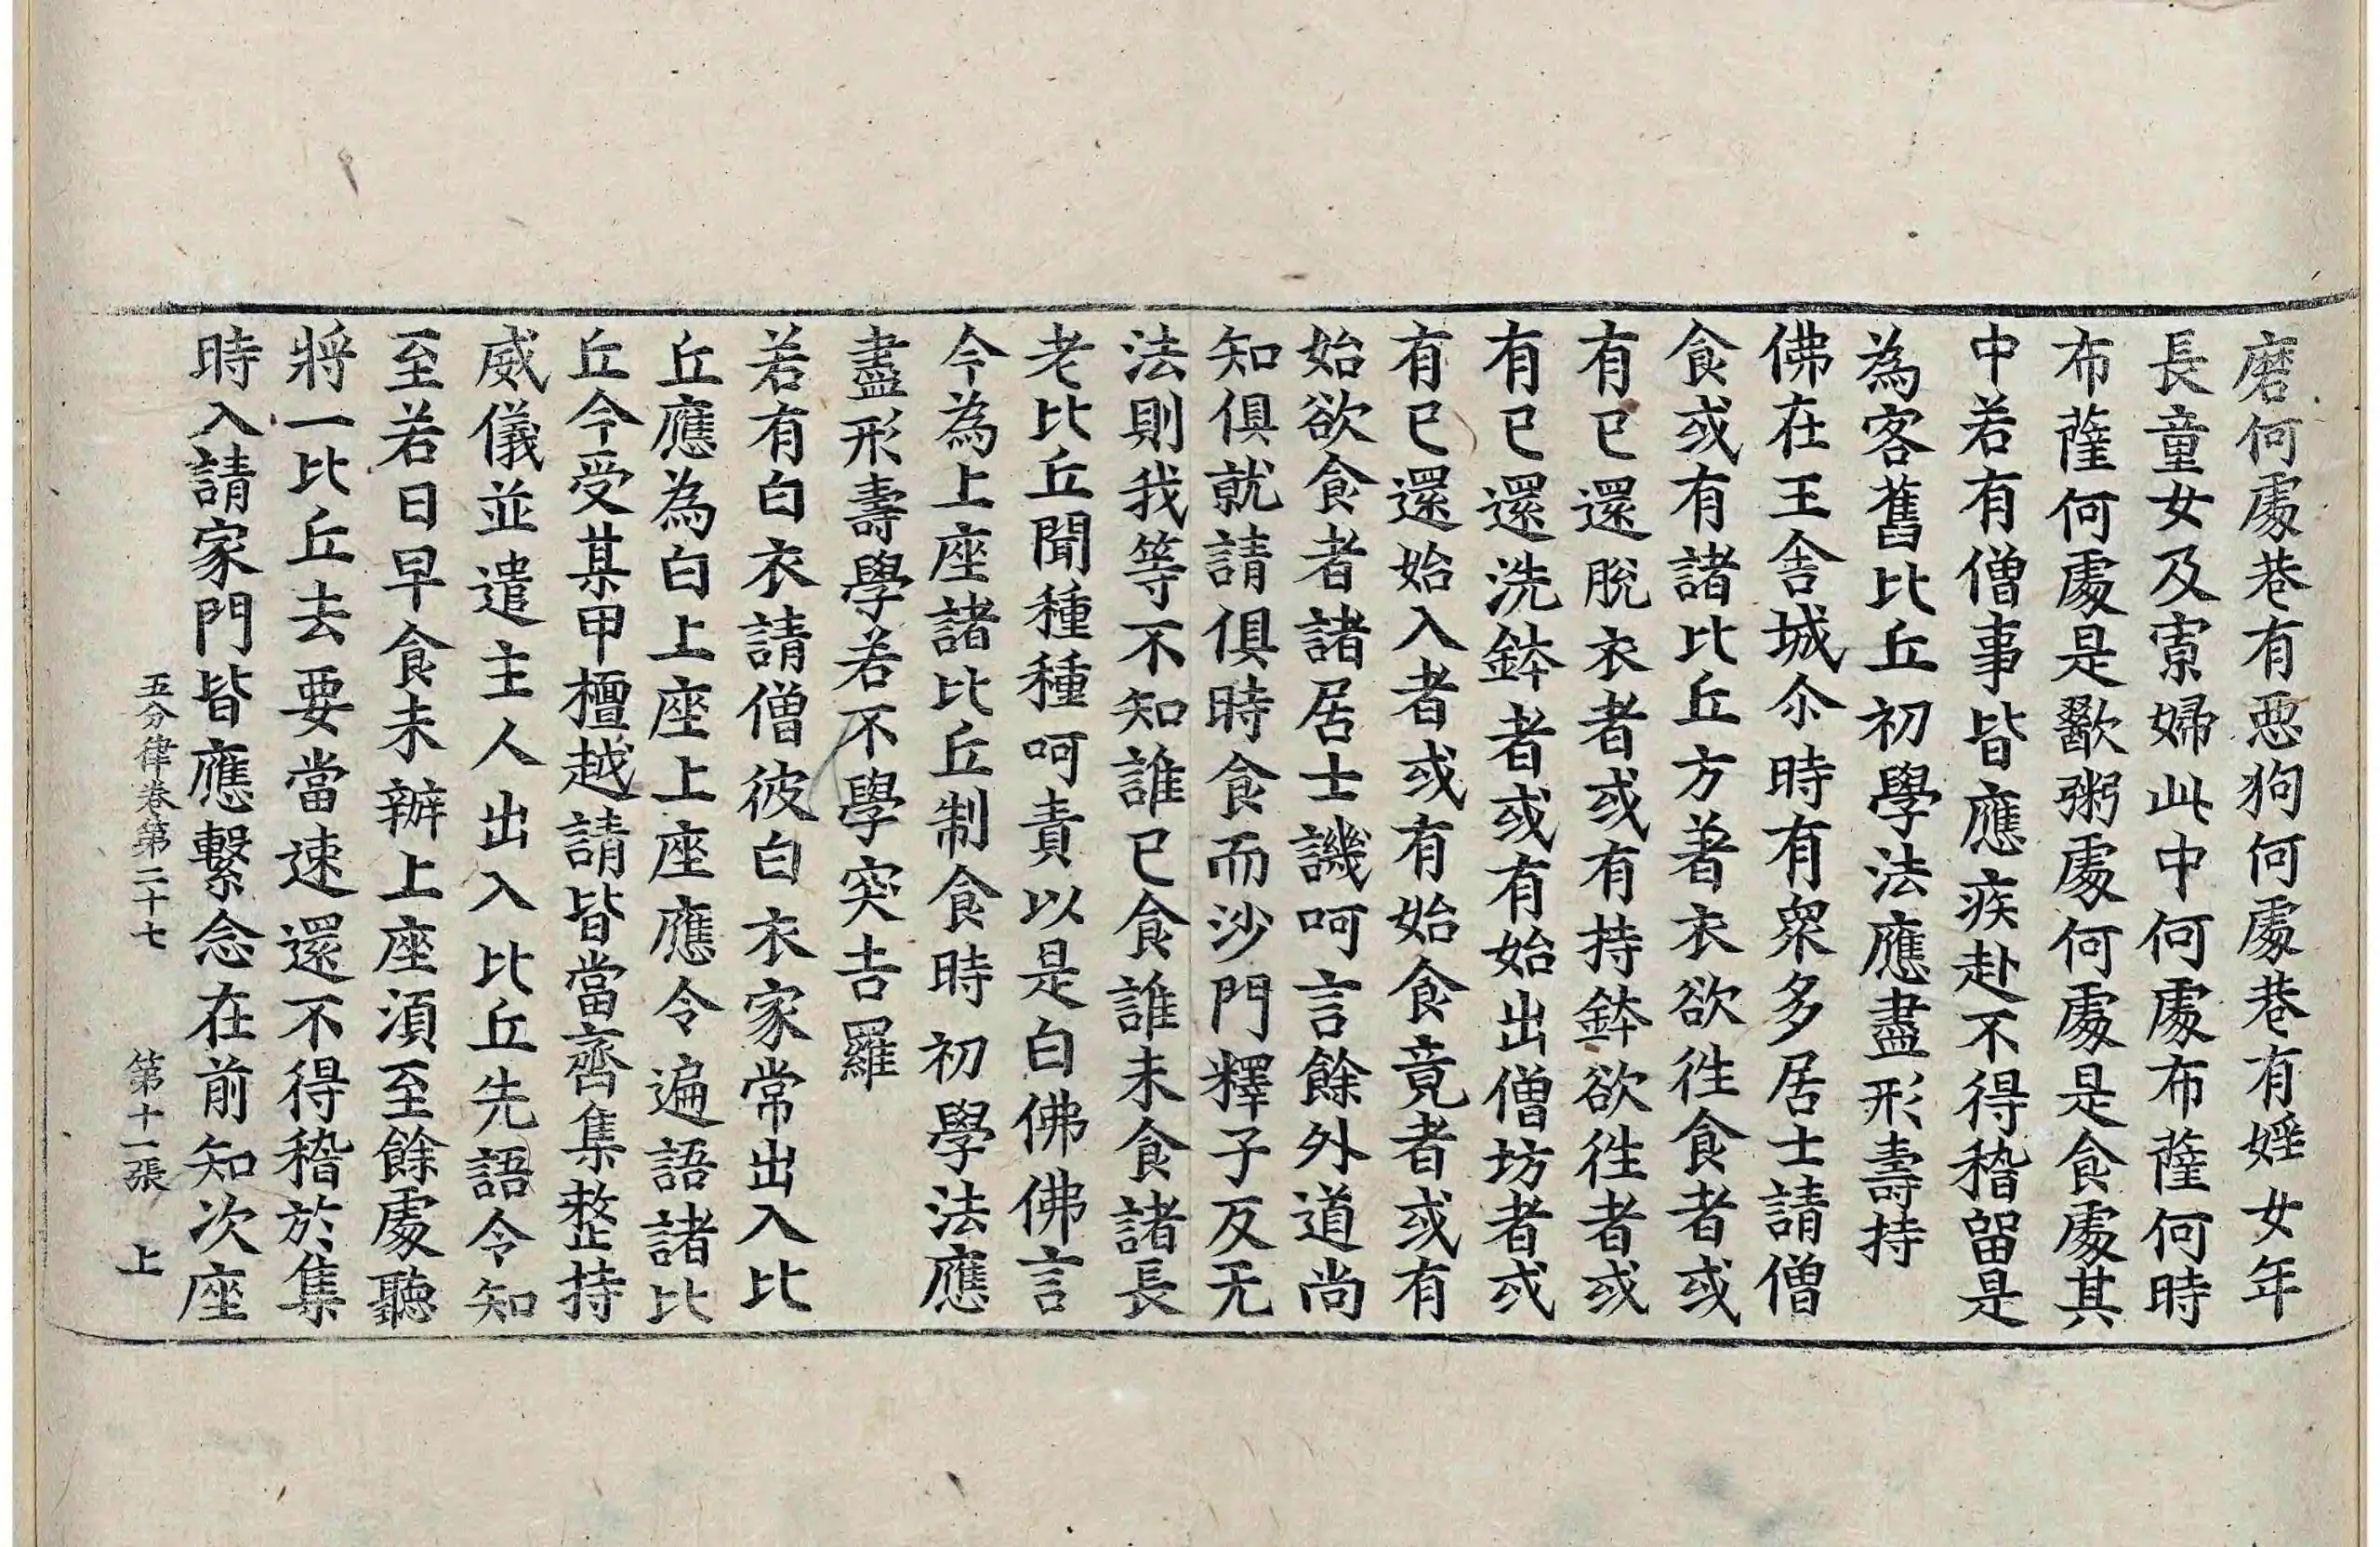 磨何處巷有惡狗何處巷有婬女年
長童女及寡婦此中何處布薩何時
布薩何處是歠粥處何處是食處其
中若有僧事皆應疾赴不得稽留是
為客舊比丘初學法應盡形壽持
佛在王舍城尒時有衆多居士請僧
食或有諸比丘方著衣欲徃食者或
有已還脫衣者或有持鉢欲徃者或
有已還洗鉢者或有始出僧坊者或
有已還始入者或有始食竟者或有
始欲食者諸居士譏呵言餘外道尚
知俱就請俱時食而沙門釋子反无
法則我等不知誰已食誰未食諸長
老比丘聞種種呵責以是白佛佛言
今為上座諸比丘制食時初學法應
盡形壽學若不學突吉羅
若有白衣請僧彼白衣家常出入比
丘應為白上座上座應令遍語諸比
丘今受某甲檀越請皆當齊集整持
威儀並遣主人出入比丘先語令知
至若日早食未辦上座湏至餘處聽
將一比丘去要當速還不得稽於集
時入請家門皆應繫念在前知次座
五分律卷第二十七　第十一張　上